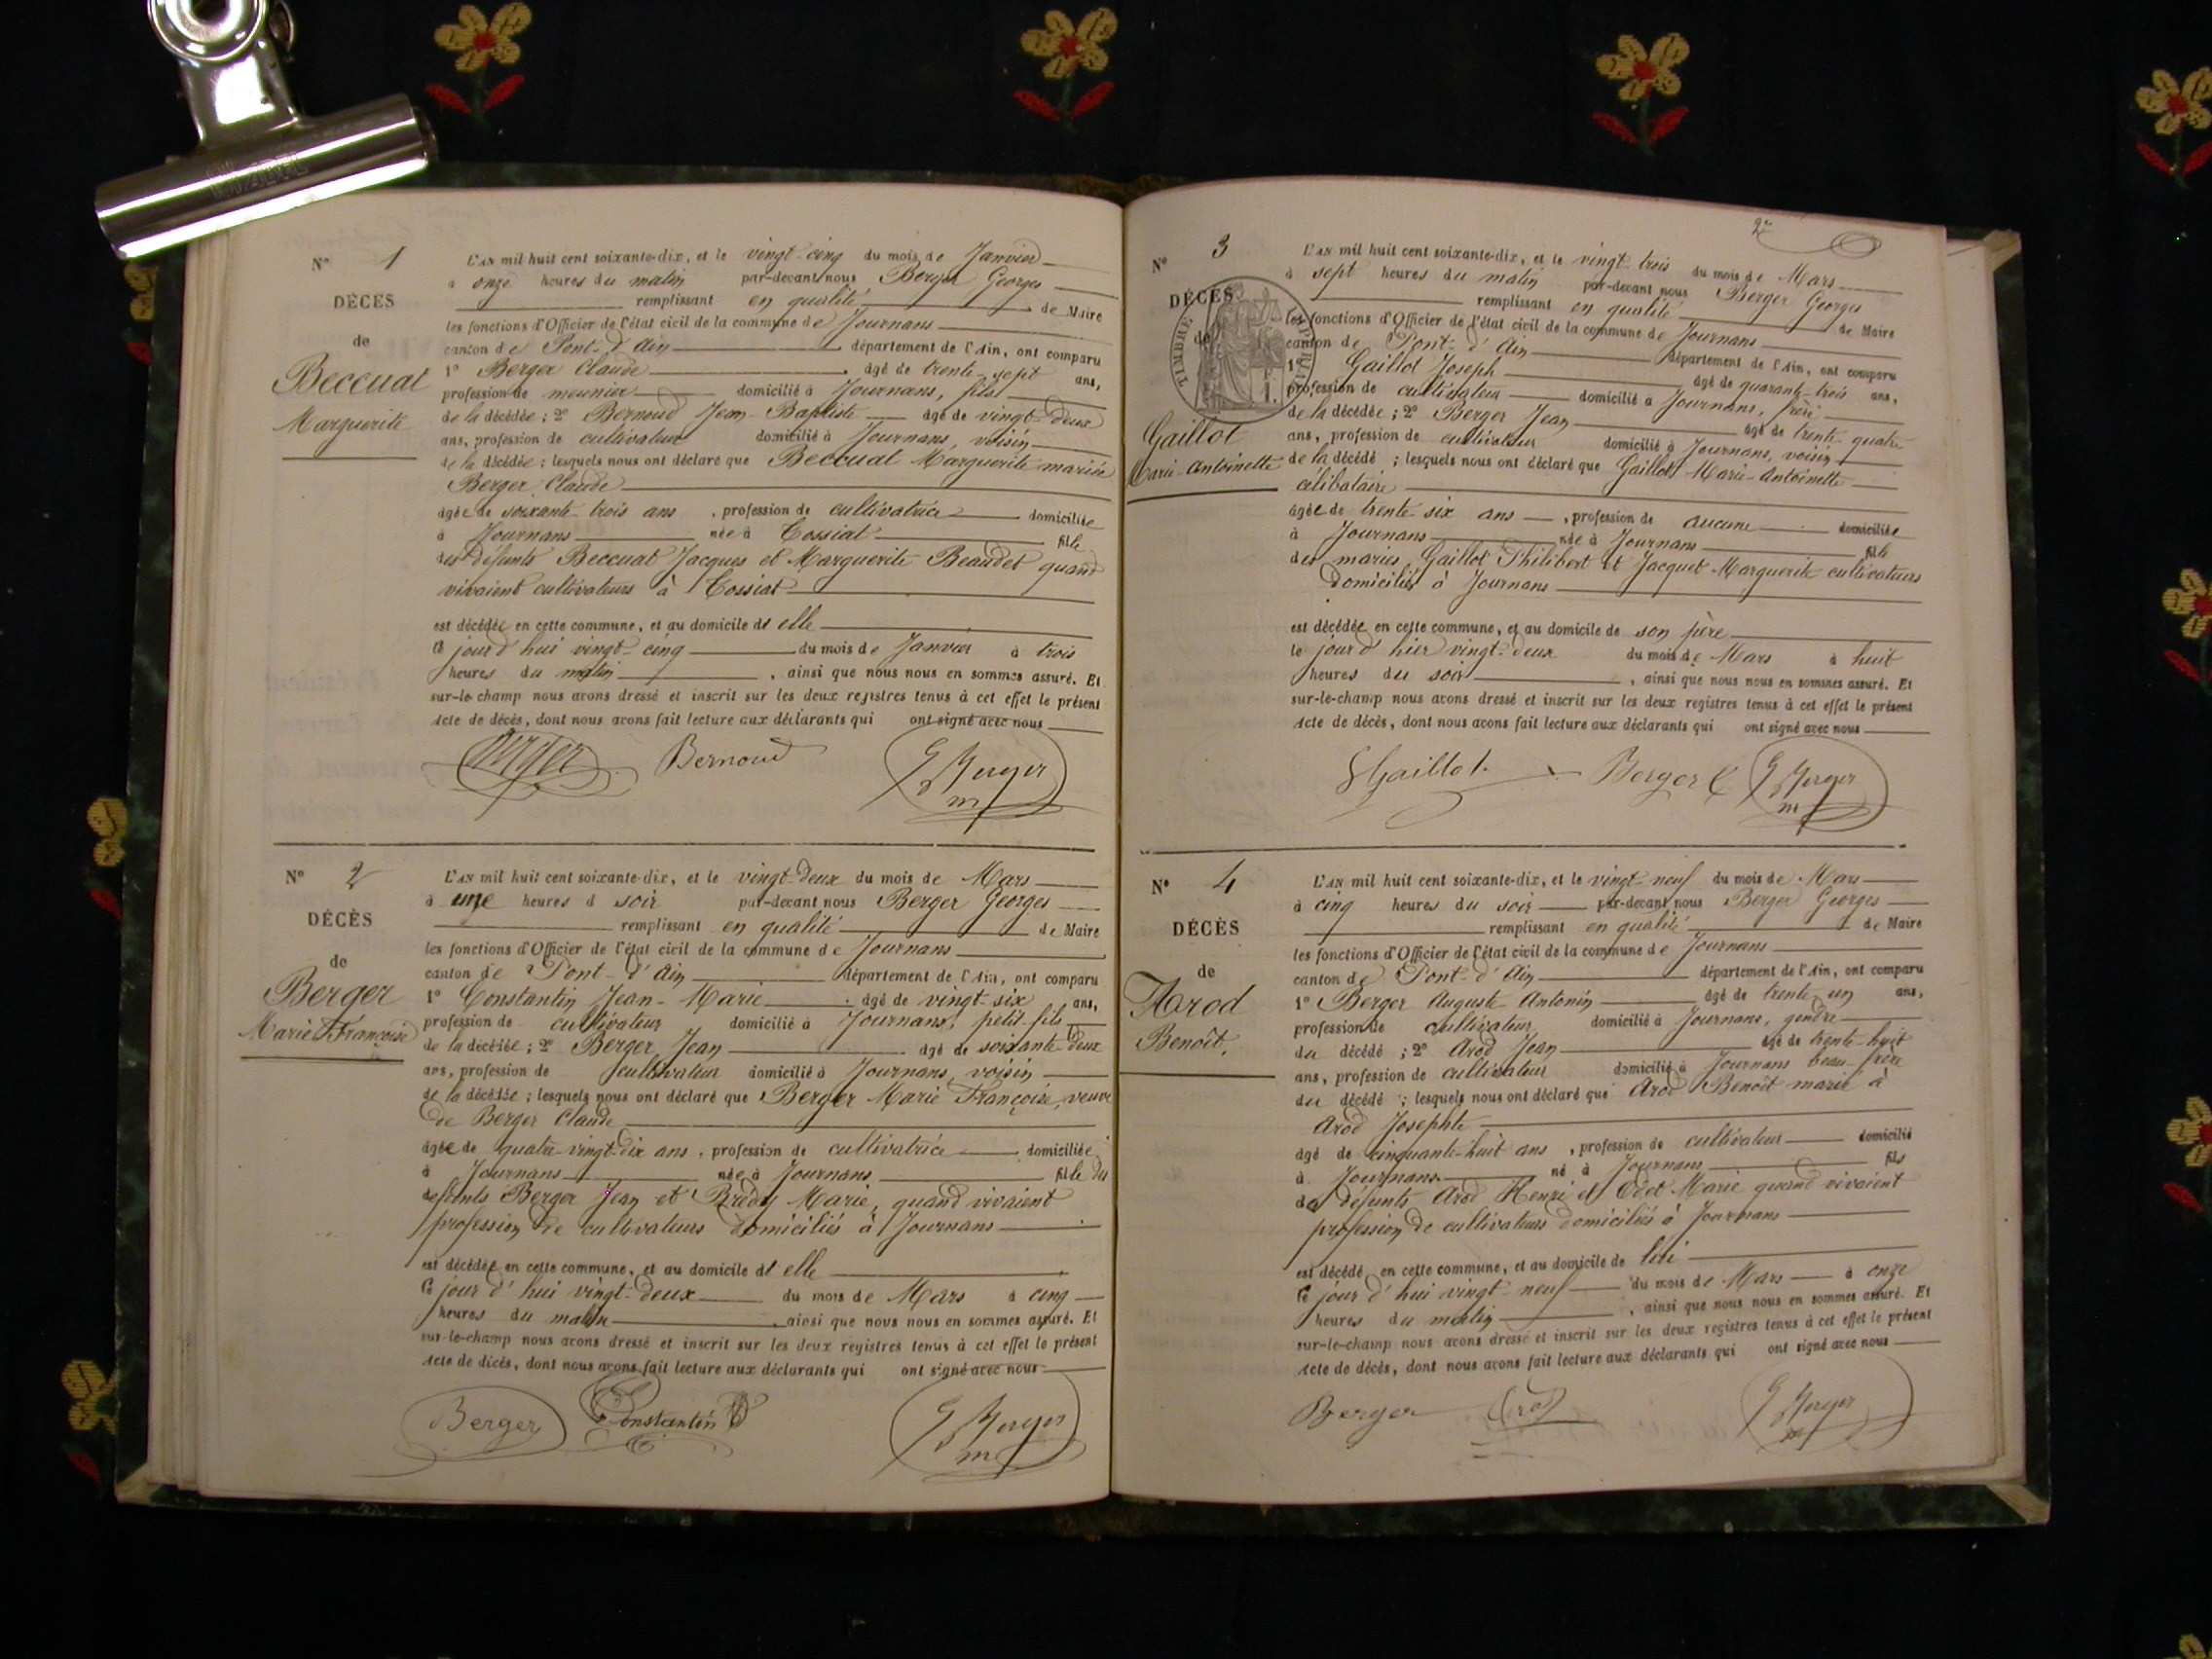 N° 1
DÉCÈS
de
Beccuat
Marguerite
L'AN mil huit cent soixante-dix, et le vingt-cinq du mois de Janvier
à onze heures du matin par-devant nous Berger Georges
remplissant en qualité de Maire
les fonctions d'Officier de l'état civil de la commune de Journans
canton de Pont-d'Ain département de l'Ain, ont comparu
1° Berger Claude âgé de trente-sept ans,
profession de meunier domicilié à Journans, fils
de la décédée ; 2° Bernoud Jean-Baptiste âgé de vingt-deux
ans, profession de cultivateur domicilié à Journans, voisin
de la décédée ; lesquels nous ont déclaré que Beccuat Marguerite mariée
Berger Claude
âgée de soixante-trois ans , profession de cultivatrice domiciliée
à Journans née à Tossiat fille
des défunts Beccuat Jacques et Marguerite Beaudet quand
vivaient cultivateurs à Tossiat
est décédée en cette commune, et au domicile d'elle
ce jourd'hui vingt-cinq du mois de Janvier à trois
heures du matin , ainsi que nous nous en sommes assuré. Et
sur-le-champ nous avons dressé et inscrit sur les deux registres tenus à cet effet le présent
acte de décès, dont nous avons fait lecture aux déclarants qui ont signé avec nous
Berger Bernoud G Berger
m
N° 2
DÉCÈS
de
Berger
Marie Françoise
L'AN mil huit cent soixante-dix, et le vingt-deux du mois de Mars
à une heures d soir par-devant nous Berger Georges
remplissant en qualité de Maire
les fonctions d'Officier de l'état civil de la commune de Journans
canton de Pont-d'Ain département de l'Ain, ont comparu
1° Constantin Jean-Marie âgé de vingt-six ans,
profession de cultivateur domicilié à Journans, petit-fils
de la décédée ; 2° Berger Jean âgé de soixante-deux
ans, profession de cultivateur domicilié à Journans, voisin
de la décédée ; lesquels nous ont déclaré que Berger Marie Françoise, veuve
de Berger Claude
âgée de quatre-vingt-dix ans , profession de cultivatrice domiciliée
à Journans née à Journans fille des
défunts Berger Jean et Marie, quand vivaient
profession de cultivateurs domiciliés à Journans
est décédée en cette commune, et au domicile d'elle
ce jourd'hui vingt-deux du mois de Mars à cinq
heures du matin , ainsi que nous nous en sommes assuré. Et
sur-le-champ nous avons dressé et inscrit sur les deux registres tenus à cet effet le présent
acte de décès, dont nous avons fait lecture aux déclarants qui ont signé avec nous
Berger Constantin G Berger
m
2e
N° 3
DÉCÈS
de
TIMBRE IMPERIAL
Gaillot
Marie-Antoinette
L'AN mil huit cent soixante-dix, et le vingt-trois du mois de Mars
à sept heures du matin par-devant nous Berger Georges
remplissant en qualité de Maire
les fonctions d'Officier de l'état civil de la commune de Journans
canton de Pont-d'Ain département de l'Ain, ont comparu
1° Gaillot Joseph âgé de quarante-trois ans,
profession de cultivateur domicilié à Journans, frère
de la décédée ; 2° Berger Jean âgé de trente-quatre
ans, profession de cultivateur domicilié à Journans, voisin
de la décédé ; lesquels nous ont déclaré que Gaillot Marie-Antoinette
célibataire
âgée de trente-six ans , profession de aucune domiciliée
à Journans née à Journans fille
des mariés Gaillot Philibert et Jacquet Marguerite cultivateurs
domiciliés à Journans
est décédée en cette commune, et au domicile de son père
le jour d'hier vingt-deux du mois de Mars à huit
heures du soir , ainsi que nous nous en sommes assuré. Et
sur-le-champ nous avons dressé et inscrit sur les deux registres tenus à cet effet le présent
acte de décès, dont nous avons fait lecture aux déclarants qui ont signé avec nous
Gaillot Berger G Berger
m
N° 4
DÉCÈS
de
Arod
Benoît.
L'AN mil huit cent soixante-dix, et le vingt-neuf du mois de Mars
à cinq heures du soir par-devant nous Berger Georges
remplissant en qualité de Maire
les fonctions d'Officier de l'état civil de la commune de Journans
canton de Pont-d'Ain département de l'Ain, ont comparu
1° Berger Auguste-Antonin âgé de trente-un ans,
profession de cultivateur domicilié à Journans, gendre
du décédé ; 2° Arod Jean âgé de trente-huit
ans, profession de cultivateur domicilié à Journans beau-frère
du décédé ; lesquels nous ont déclaré que Arod Benoît marié à
Arod Josephte
âgé de cinquante-huit ans , profession de cultivateur domicilié
à Journans né à Journans fils
des défunts Arod Henri et Odet Marie quand vivaient
profession de cultivateurs domiciliés à Journans
est décédé en cette commune, et au domicile de lui
ce jourd'hui vingt-neuf du mois de Mars à onze
heures du matin , ainsi que nous nous en sommes assuré. Et
sur-le-champ nous avons dressé et inscrit sur les deux registres tenus à cet effet le présent
acte de décès, dont nous avons fait lecture aux déclarants qui ont signé avec nous
Berger Arod G Berger
m